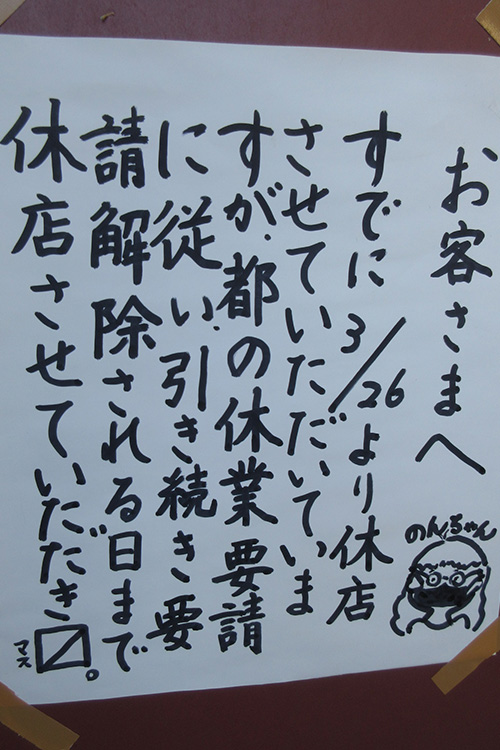 お客さまへ
すでに3/26より休店
させていただいていま
すが、都の休業要請
に従い、引き続き要
請解除される日まで
休店させていただき〼。
マス
のんちゃん